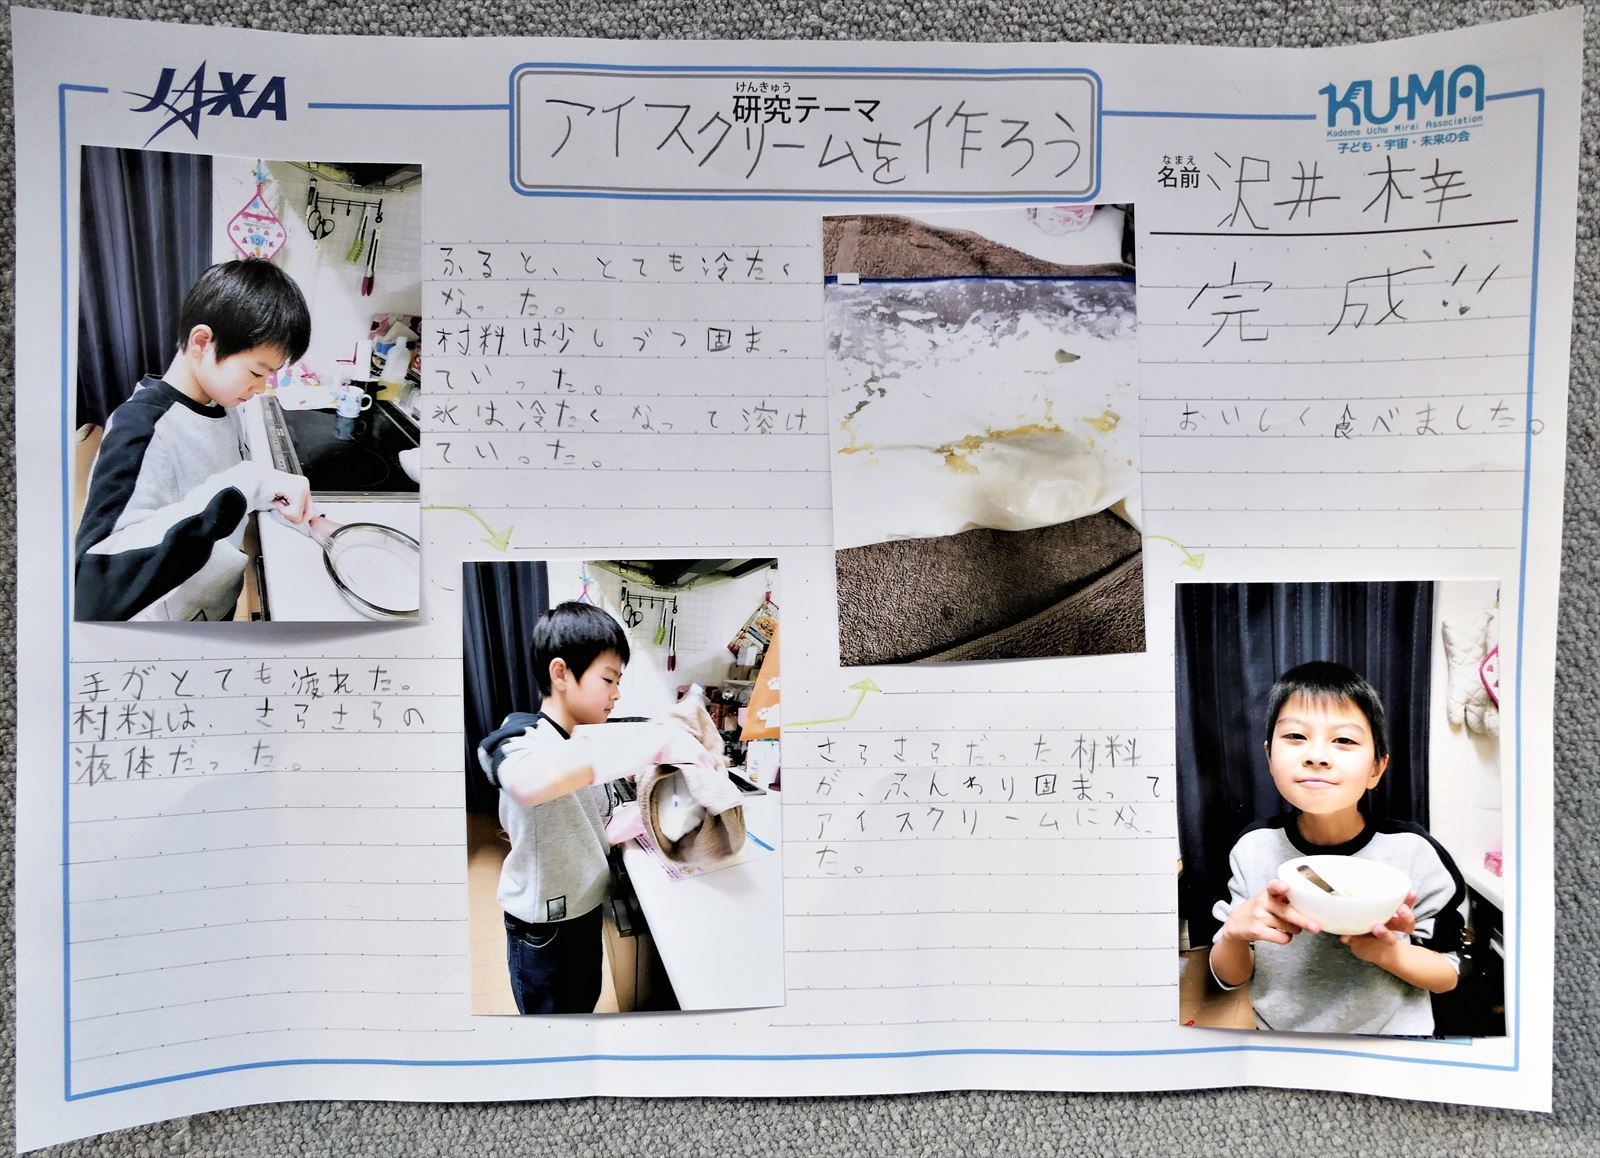 JAXA
けんきゅう
研究テーマ
アイスクリームを作ろう
KU-MA
Kodomo Uchu Mirai Association
子ども・宇宙・未来の会
なまえ
名前
沢井 梓
手がとても疲れた。
材料は、さらさらの
液体だった。
ふると、とても冷たく
なった。
材料は少しづつ固まっ
ていった。
氷は冷たくなって溶け
ていった。
さらさらだった材料
が、ふんわり固まって
アイスクリームになっ
た。
完成!!
おいしく食べました。